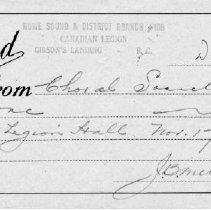 HOWE SOUND & DISTRICT BRANCH #109
CANADIAN LEGION
GIBSON'S LANDING - B.C.
d D
rom Choral Societ
ne
Legion Hall Nov. 17